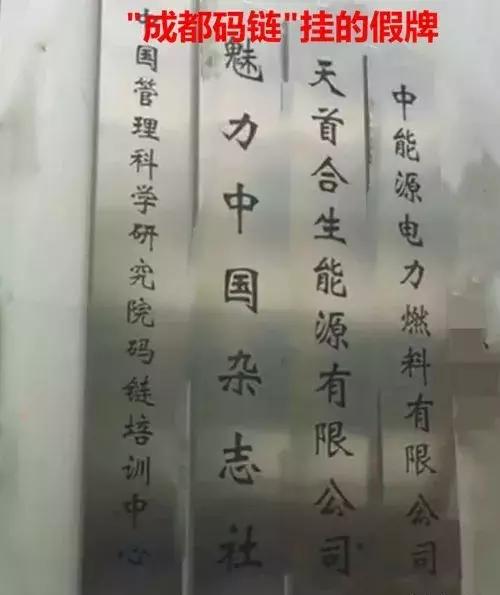 "成都码链"挂的假牌
中国管理科学研究院码链培训中心
魅力中国杂志社
天首合生能源有限公司
中能源电力燃料有限公司